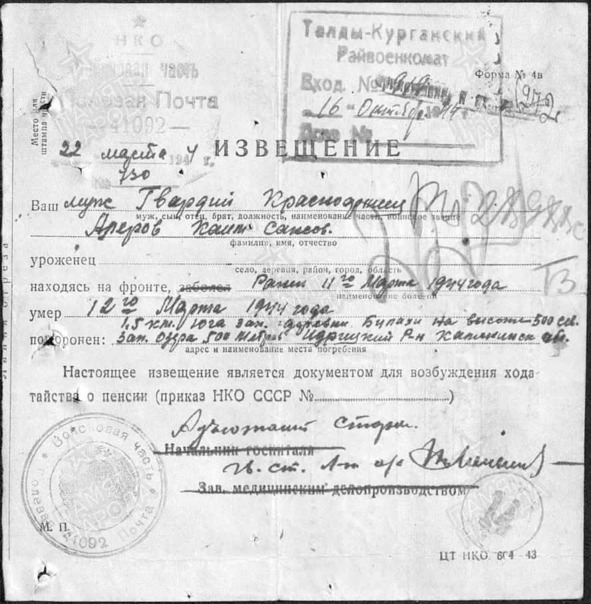 НКО
Войсковая часть
Полевая Почта
41092
Место для штампа части
Талды-Курганский
Райвоенкомат
Вход. №
16 " Октябр 194
Дело №
Форма № 4в
22 марта 1944 г.
№ 130
ИЗВЕЩЕНИЕ
Ваш муж Гвардий Красноармеец
муж, сын, отец, брат, должность, наименование части, воинское звание
фамилия, имя, отчество
уроженец
село, деревня, район, город, область
находясь на фронте, заболел Ранен 11го Марта 1944 года
наименование болезни
умер 12го Марта 1944 года
1,5 км. юга зап. деревни на высоте 500 сев.
похоронен: Зап. Озера 500 метров Идрицкий Р-н Калининск обл.
адрес и наименование места погребения
Настоящее извещение является документом для возбуждения хода
тайства о пенсии (приказ НКО СССР №)
Адъютант Старш.
Начальник госпиталя
Гв. ст. л-т
Зав. медицинским делопроизводством
Войсковая часть Полевая Почта 41092
М. П.
ЦТ НКО 604-43